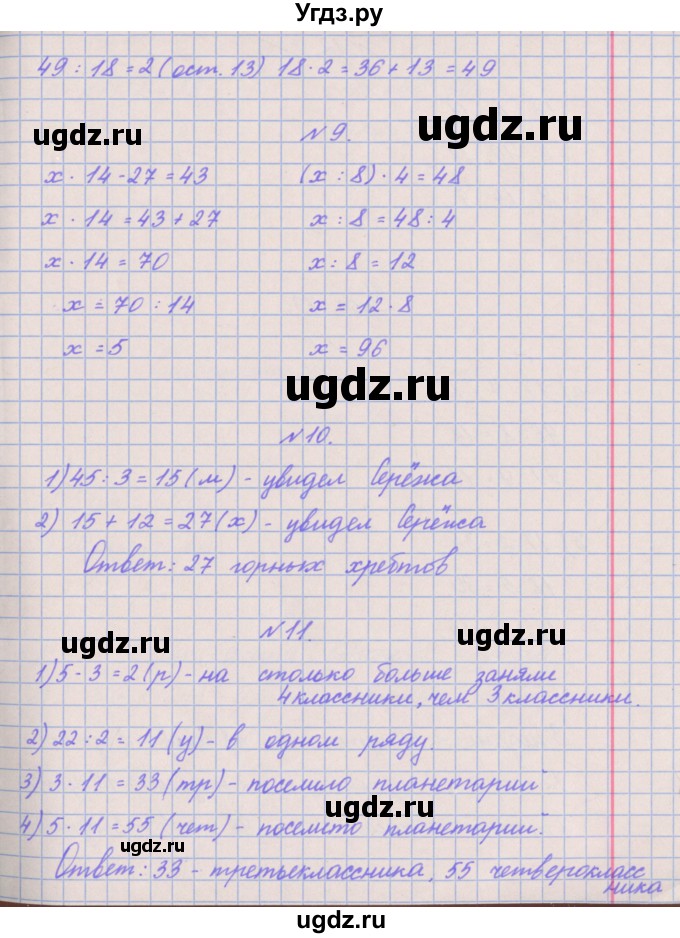 Угдз.ру
49 : 18 = 2 (ост. 13) 18 · 2 = 36 + 13 = 49
ugdz.ru
ugdz.ru
№ 9.
х · 14 - 27 = 43
х · 14 = 43 + 27
х · 14 = 70
х = 70 : 14
х = 5
(х : 8) · 4 = 48
х : 8 = 48 : 4
х : 8 = 12
х = 12 · 8
х = 96
ugdz.ru
№ 10.
1) 45 : 3 = 15 (м) - увидел Серёжа
2) 15 + 12 = 27 (х) - увидел Серёжа
Ответ: 27 горных хребтов
ugdz.ru
ugdz.ru
№ 11.
1) 5 - 3 = 2 (р) - на столько больше заняли
4 классники, чем 3 классники.
2) 22 : 2 = 11 (у) - в одном ряду.
3) 3 · 11 = 33 (тр) - посетило планетарий
ugdz.ru
4) 5 · 11 = 55 (чет) - посетило планетарий.
ugdz.ru
Ответ: 33 - третьеклассника, 55 четверокласс
ника
ugdz.ru